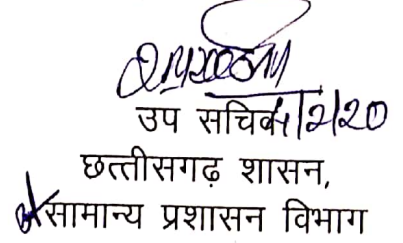 उप सचिव 4/2/20
छत्तीसगढ़ शासन,
सामान्य प्रशासन विभाग